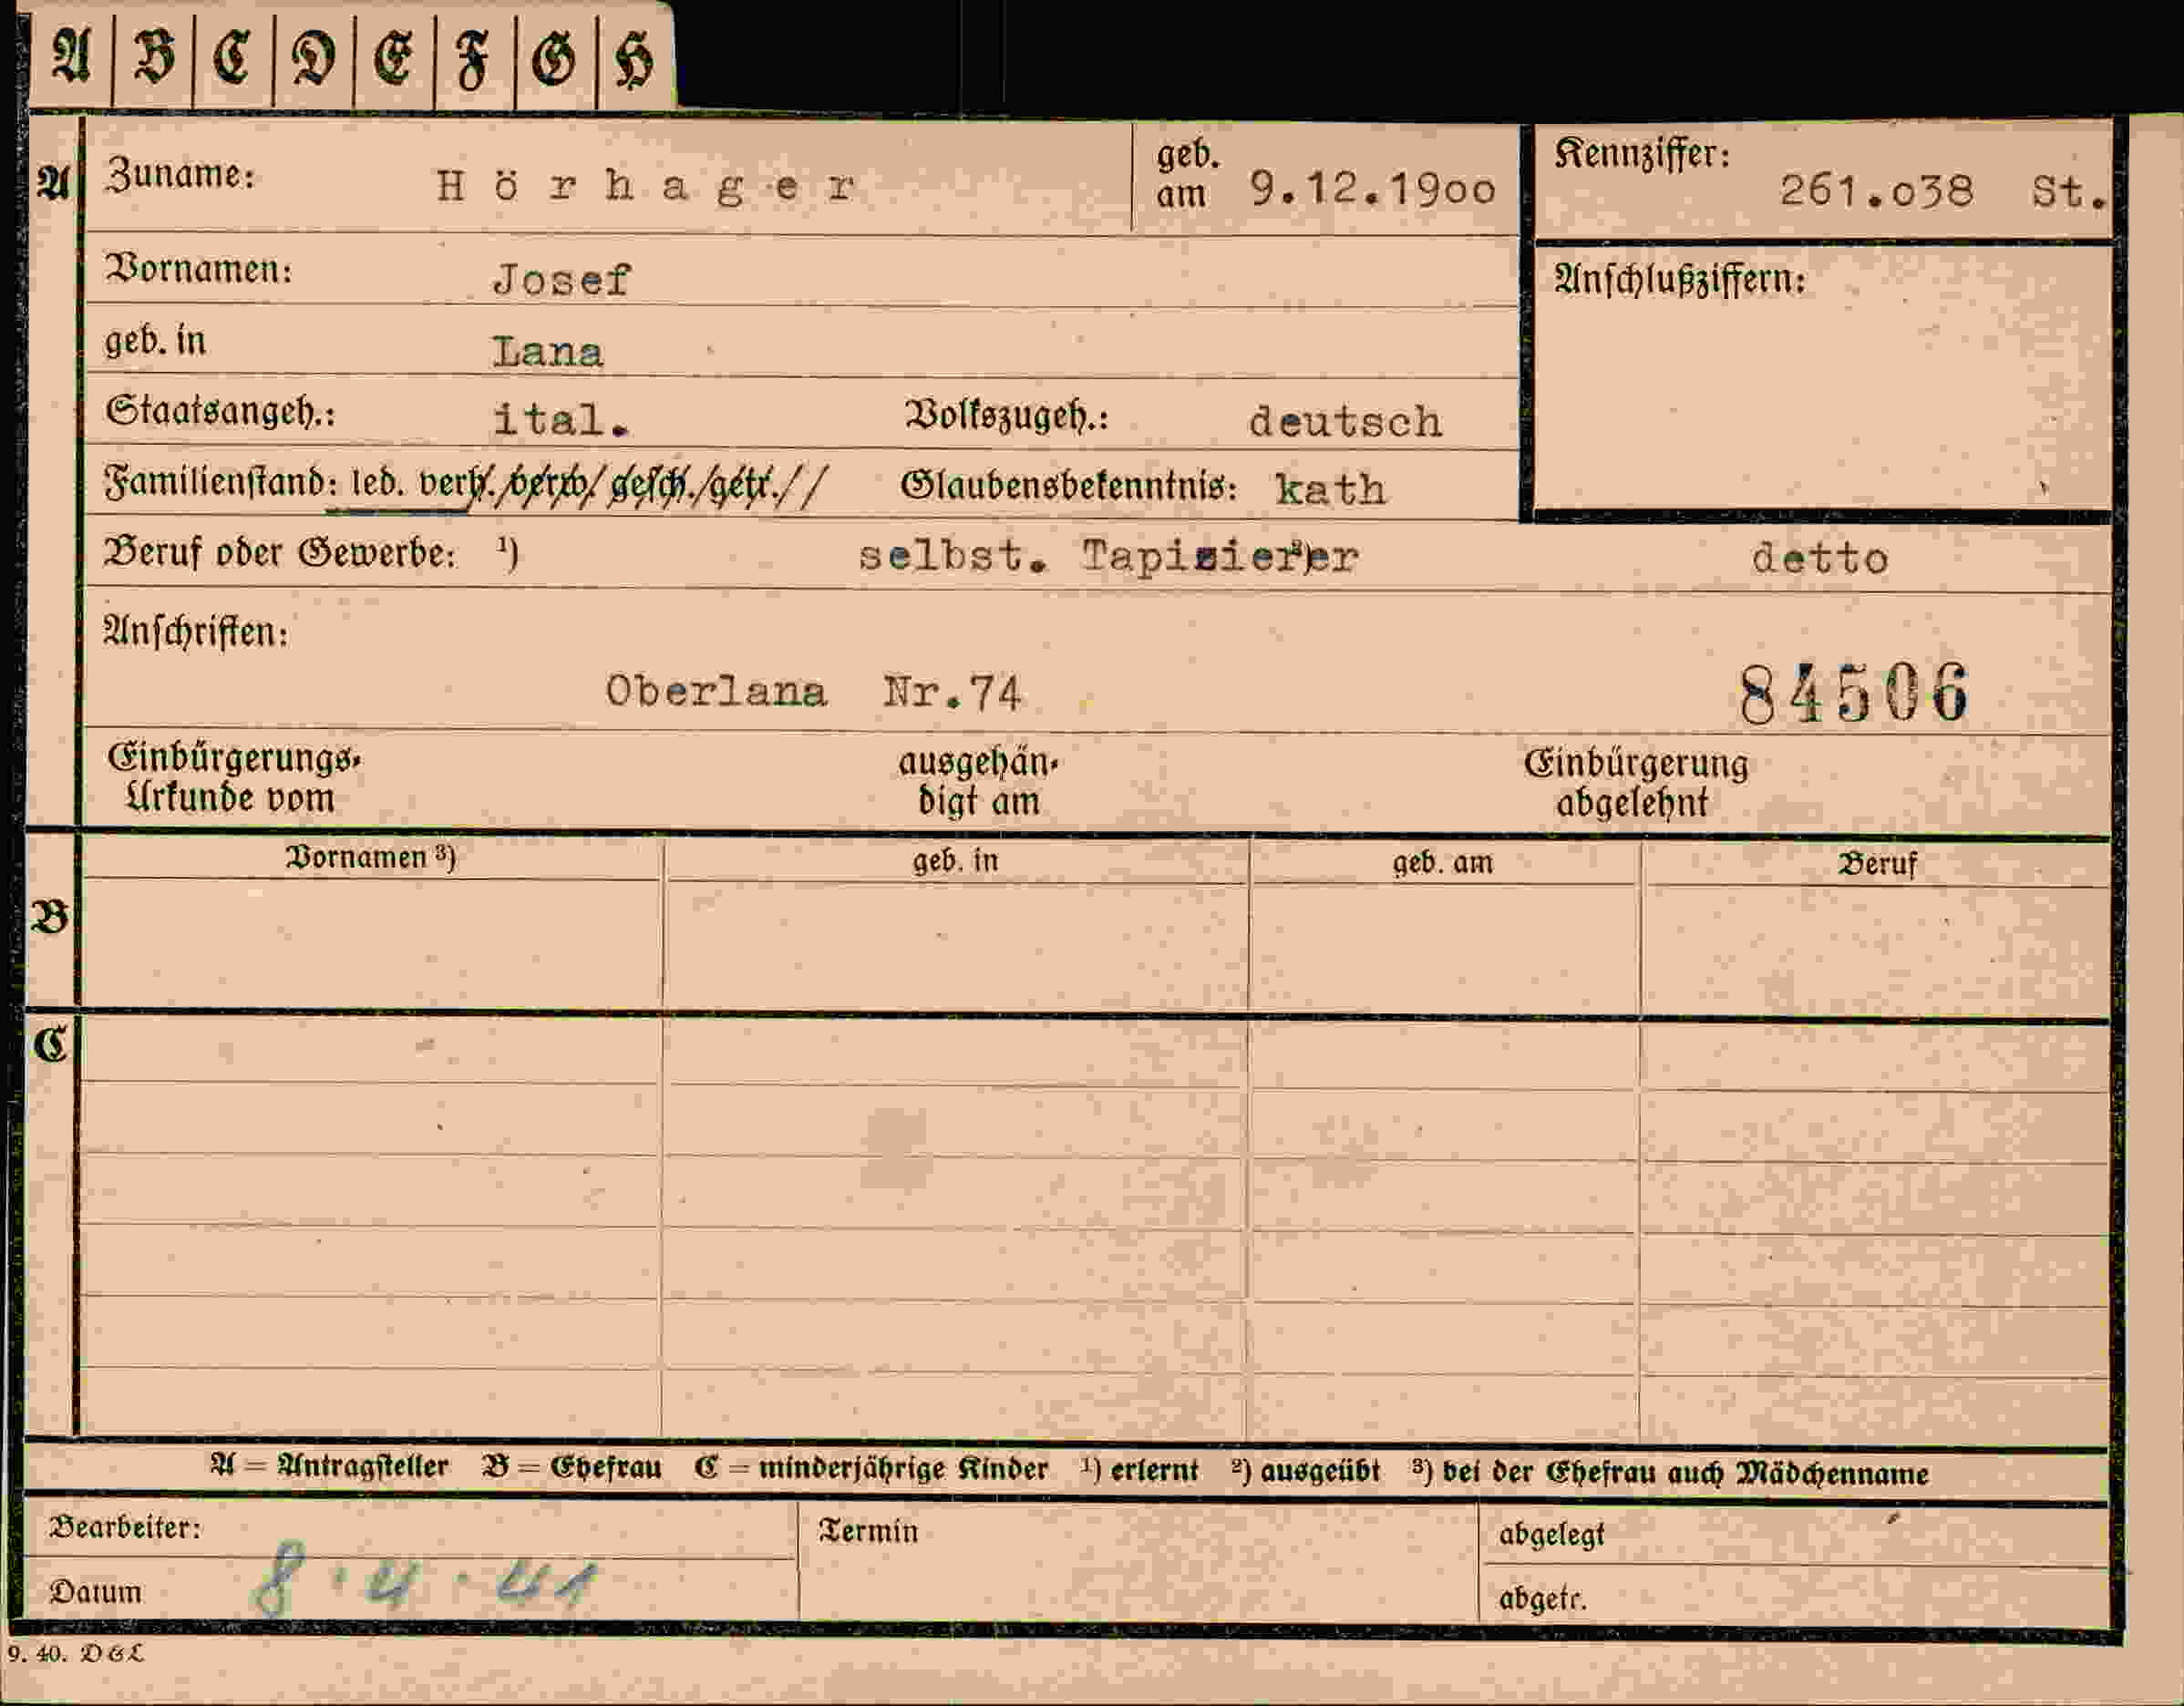 A B C D E F G H
A Zuname: Hörhager geb. am 9.12.1900 Kennziffer: 261.038 St.
Vornamen: Josef Anschlußziffern:
geb. in Lana
Staatsangeh.: ital. Volkszugeh.: deutsch
Familienstand: led. verh./verw/gesch./getr.// Glaubensbekenntnis: kath
Beruf oder Gewerbe: ¹) selbst. Tapizierer ²) detto
Anschriften:
Oberlana Nr.74 84506
Einbürgerungs- ausgehän- Einbürgerung
Urkunde vom digt am abgelehnt
Vornamen ³) geb. in geb. am Beruf
B
C
A = Antragsteller B = Ehefrau C = minderjährige Kinder ¹) erlernt ²) ausgeübt ³) bei der Ehefrau auch Mädchenname
Bearbeiter: Termin abgelegt
Datum 8.4.41 abgetr.
9. 40. DGL